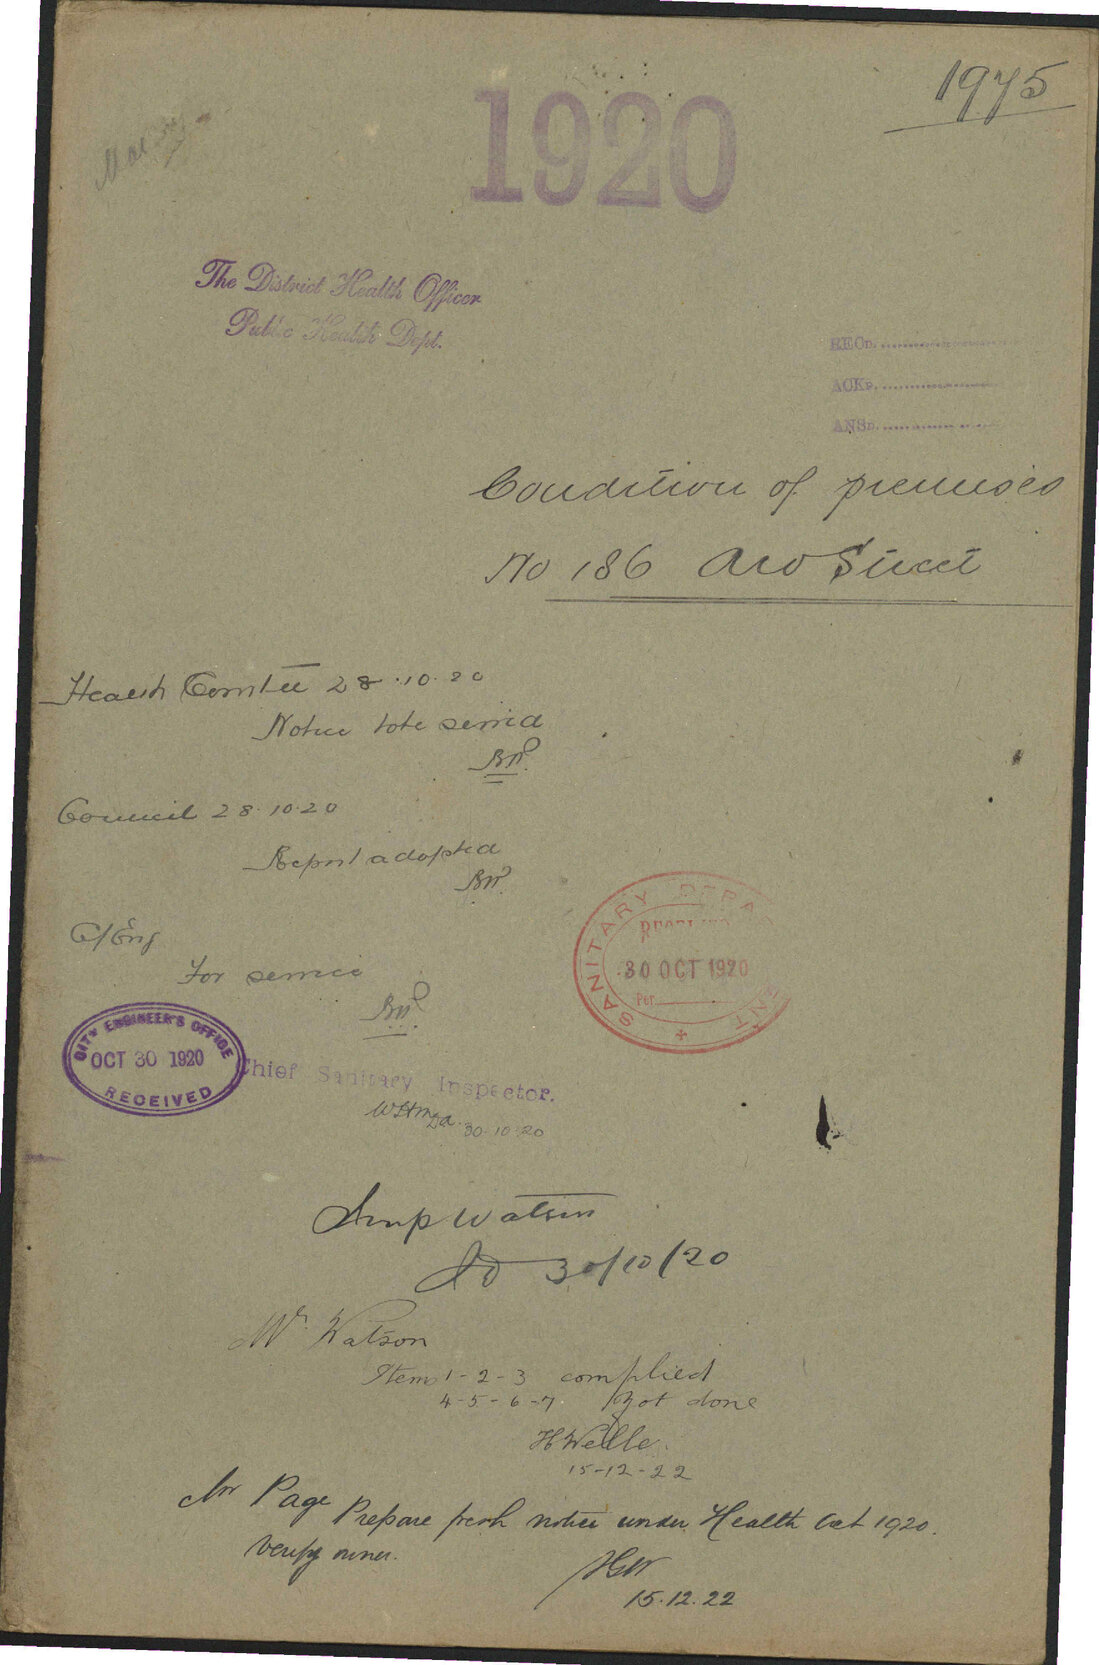 1975
1920
The District Health Officer
Public Health Dept.
RECD.
ACKD.
ANSD.
Condition of premises
No 186 Aro Street
Health Comtee 28.10.20
Notice to be served
Council 28.10.20
Report adopted
C/Eng
For service
SANITARY DEPARTMENT
RECEIVED
30 OCT 1920
Per
CITY ENGINEER'S OFFICE
OCT 30 1920
RECEIVED
Chief Sanitary Inspector.
30.10.20
Insp Watson
30/10/20
Mr. Watson
Items 1-2-3 complied
4-5-6-7. Not done
15-12-22
Mr Page Prepare fresh notice under Health Act 1920.
Verify owner.
15.12.22